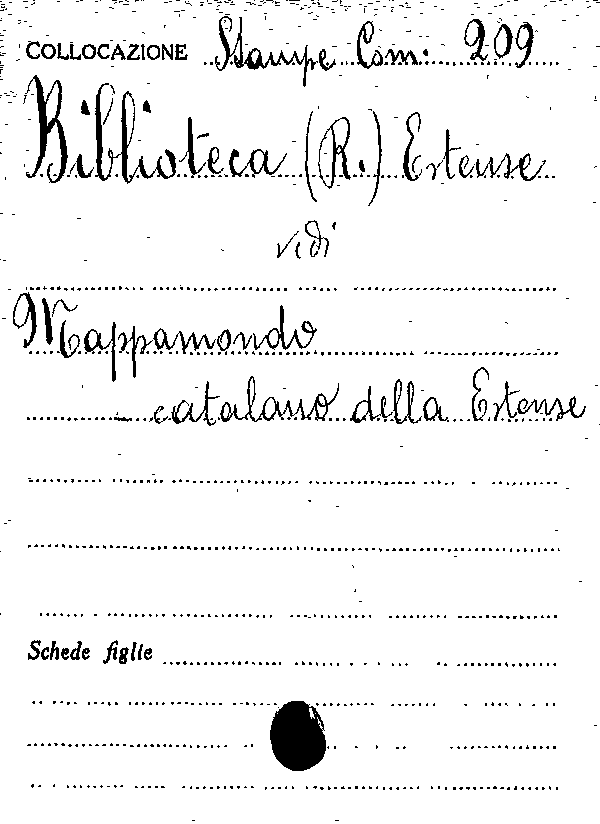 COLLOCAZIONE Stampe Com: 209
Biblioteca (R.) Estense
vedi
Mappamondo
catalano della Estense
Schede figlie